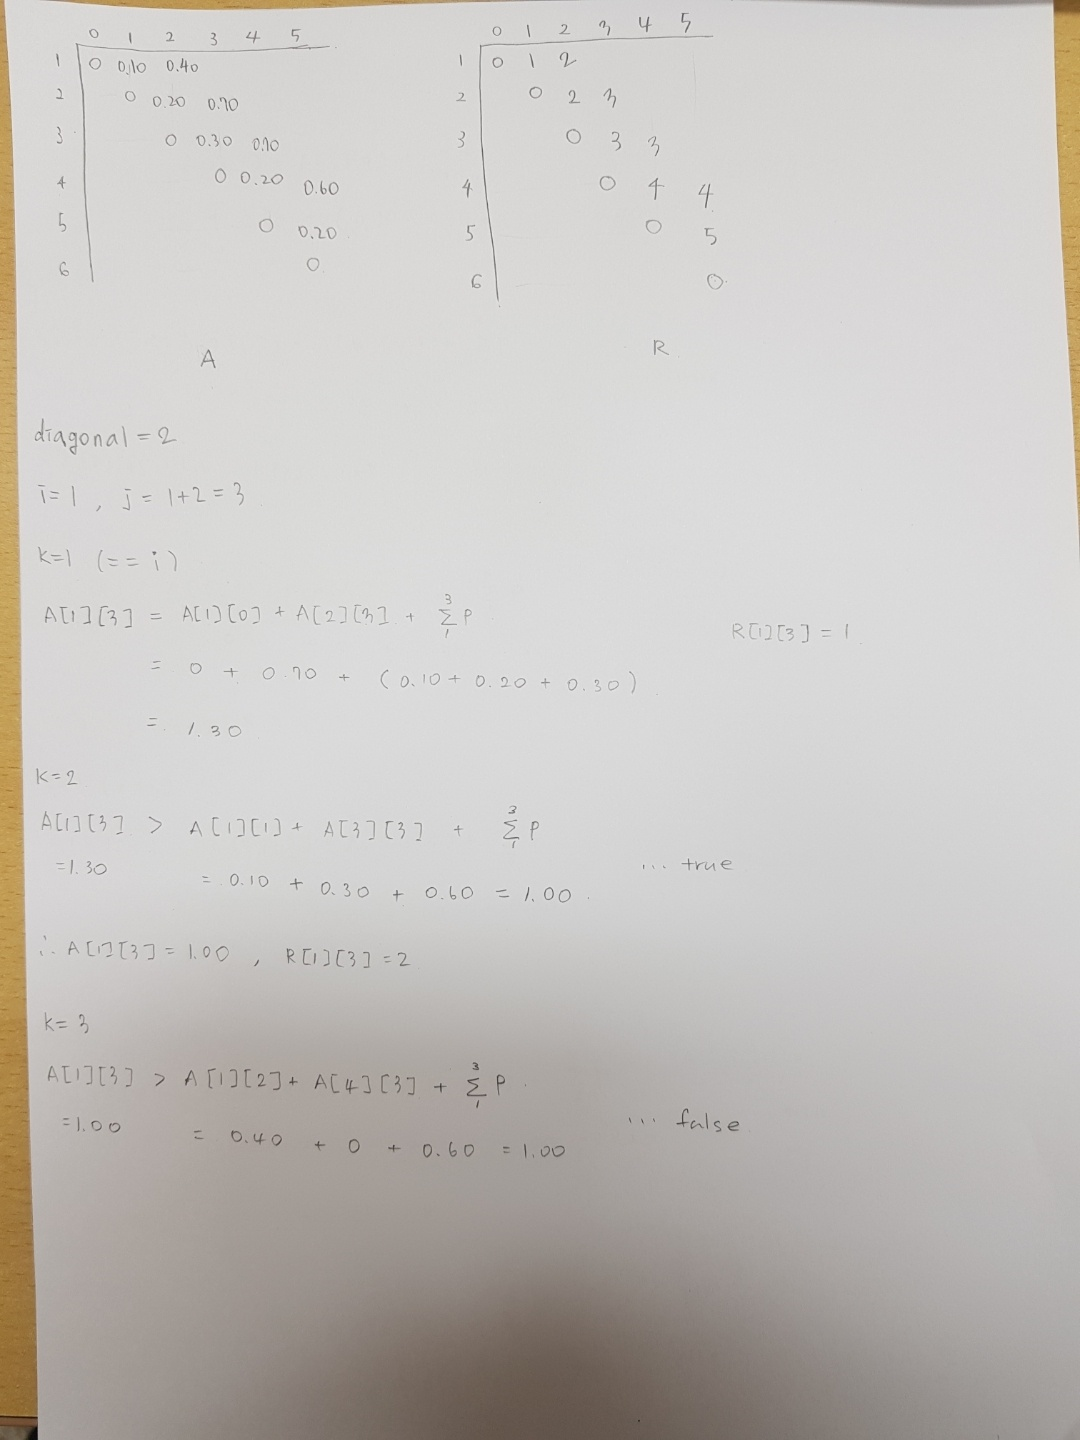 0 1 2 3 4 5
1 0 0.10 0.40
2 0 0.20 0.70
3 0 0.30 0.70
4 0 0.20 0.60
5 0 0.20
6 0
A
0 1 2 3 4 5
1 0 1 2
2 0 2 3
3 0 3 3
4 0 4 4
5 0 5
6 0
R
diagonal = 2
i=1 , j = 1+2 = 3
k=1 (== i)
A[1][3] = A[1][0] + A[2][3] + 3 Σ 1 P R[1][3] = 1
= 0 + 0.70 + (0.10 + 0.20 + 0.30)
= 1.30
k=2
A[1][3] > A[1][1] + A[3][3] + 3 Σ 1 P
=1.30 = 0.10 + 0.30 + 0.60 = 1.00 ... true
∴ A[1][3] = 1.00 , R[1][3] = 2
k=3
A[1][3] > A[1][2] + A[4][3] + 3 Σ 1 P
=1.00 = 0.40 + 0 + 0.60 = 1.00 ... false